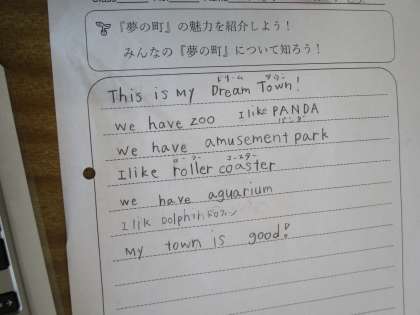 『夢の町』の魅力を紹介しよう！
みんなの『夢の町』について知ろう！
ドリーム タウン
This is My Dream Town!
we have zoo I like PANDA
パンダ
we have amusement park
ローラー コースター
I like roller coaster
we have aguarium
I lik Dolphin
My town is good!